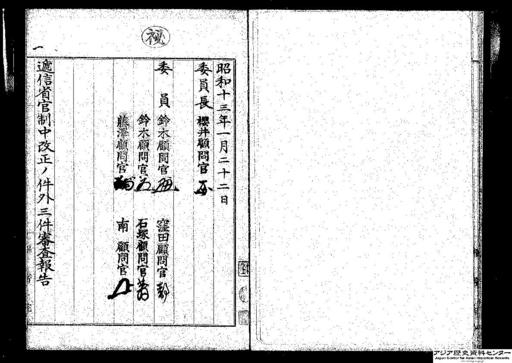 秘
昭和十三年一月二十二日
委員長 櫻井顧問官
委員 鈴木顧問官 窪田顧問官
鈴木顧問官 石塚顧問官
藤澤顧問官 南顧問官
遞信省官制中改正ノ件外三件審査報告
一
アジア歴史資料センター
Japan Center for Asian Historical Records